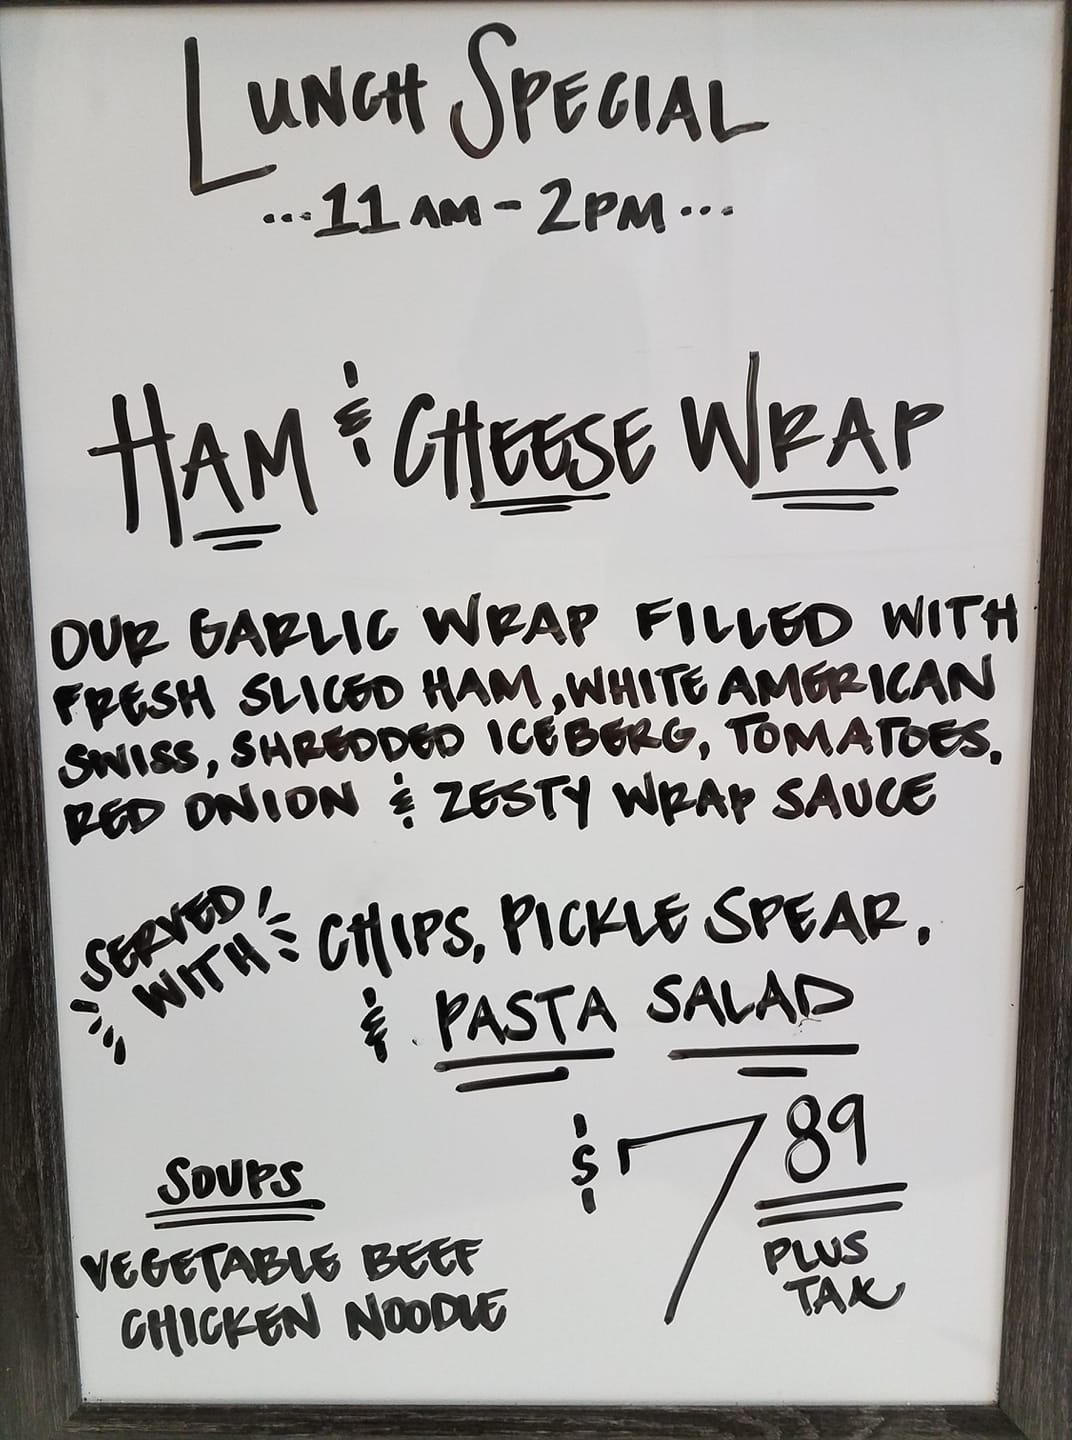 LUNCH SPECIAL
...11 AM - 2 PM...
HAM & CHEESE WRAP
OUR GARLIC WRAP FILLED WITH
FRESH SLICED HAM, WHITE AMERICAN
SWISS, SHREDDED ICEBERG, TOMATOES,
RED ONION & ZESTY WRAP SAUCE
SERVED
WITH
CHIPS, PICKLE SPEAR,
& PASTA SALAD
$7 89
PLUS
TAX
SOUPS
VEGETABLE BEEF
CHICKEN NOODLE